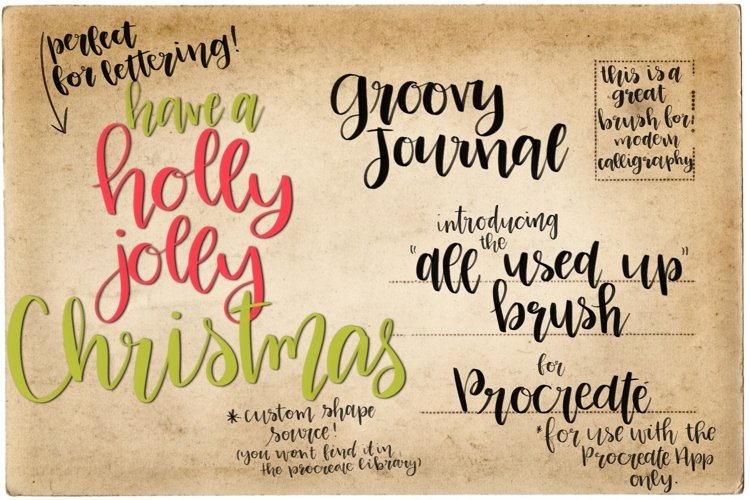 perfect
for lettering!
have a
holly
jolly
Christmas
*custom shape
source!
(you wont find it in
the procreate library)
Groovy
Journal
this is a
great
brush for
modern
calligraphy
introducing
the
"all used up"
brush
for
Procreate
*for use with the
Procreate App
only.